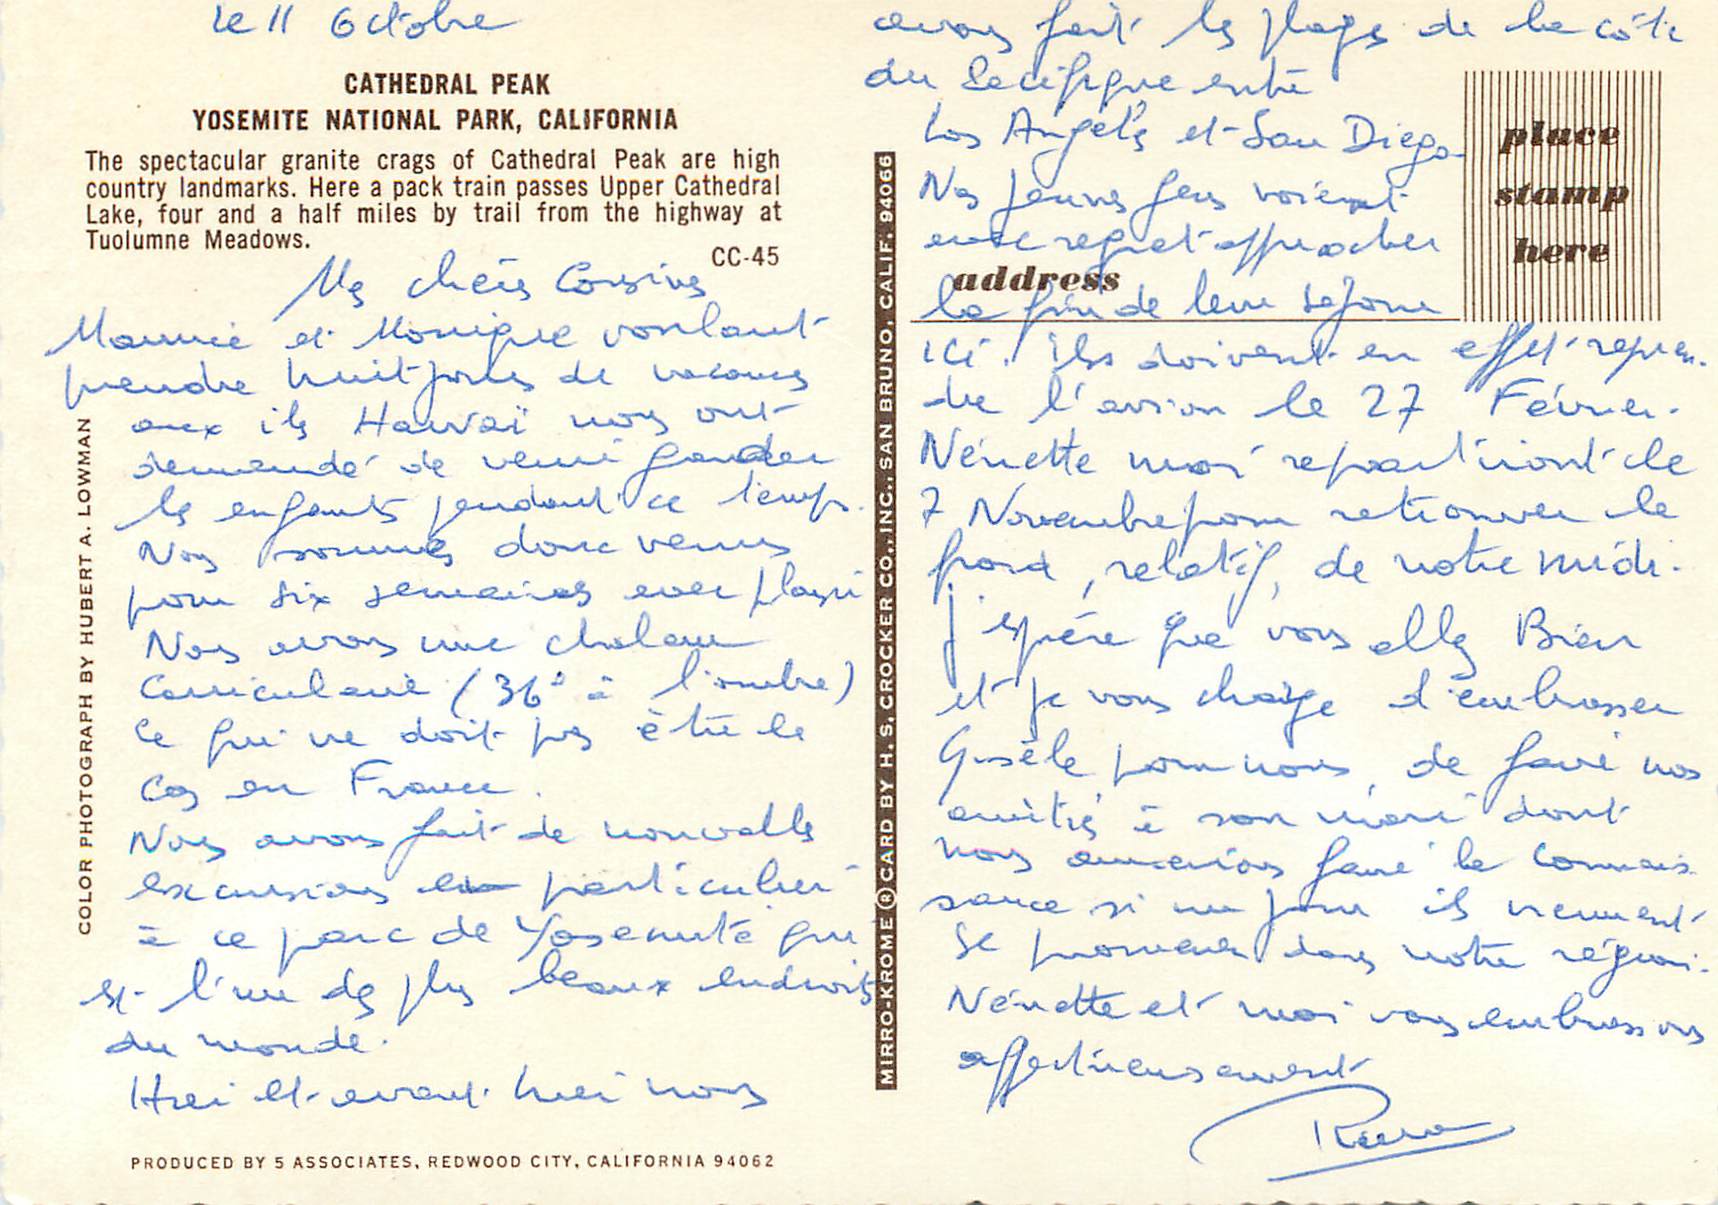 le 11 Octobre
CATHEDRAL PEAK
YOSEMITE NATIONAL PARK, CALIFORNIA
The spectacular granite crags of Cathedral Peak are high
country landmarks. Here a pack train passes Upper Cathedral
Lake, four and a half miles by trail from the highway at
Tuolumne Meadows.
CC-45
Mes chères Cousines
Maurice et Monique voulant
prendre huit jours de vacances
aux iles Hawaï nous ont
demandé de venir garder
les enfants pendant ce temps.
Nous sommes donc venus
pour six semaines avec plaisir
Nous avons une chaleur
caniculaire (36° à l'ombre)
ce qui ne doit pas être le
cas en France.
Nous avons fait de nouvelles
excursions en particulier
à ce parc de Yosemite qui
est l'un des plus beaux endroits
du monde.
Hier et avant hier nous
COLOR PHOTOGRAPH BY HUBERT A. LOWMAN
PRODUCED BY 5 ASSOCIATES, REDWOOD CITY, CALIFORNIA 94062
MIRRO-KROME ® CARD BY H. S. CROCKER CO., INC., SAN BRUNO, CALIF. 94066
avons fait les plages de la côte
du Pacifique entre
Los Angeles et San Diego
Nos jeunes gens voient
avec regret approcher
la fin de leur séjour
ici. Ils doivent en effet repren.
dre l'avion le 27 Février.
Nénette moi repartiront le
7 Novembre pour retrouver le
froid, relatif, de notre midi.
J'espère que vous allez Bien
et je vous charge d'embrasser
Gisèle pour nous, de faire nos
amitiés à son mari dont
nous aimerions faire la connais
sance si un jour ils viennent
se promener dans notre région.
Nénette et moi vous embrassons
affectueusement
place
stamp
here
address